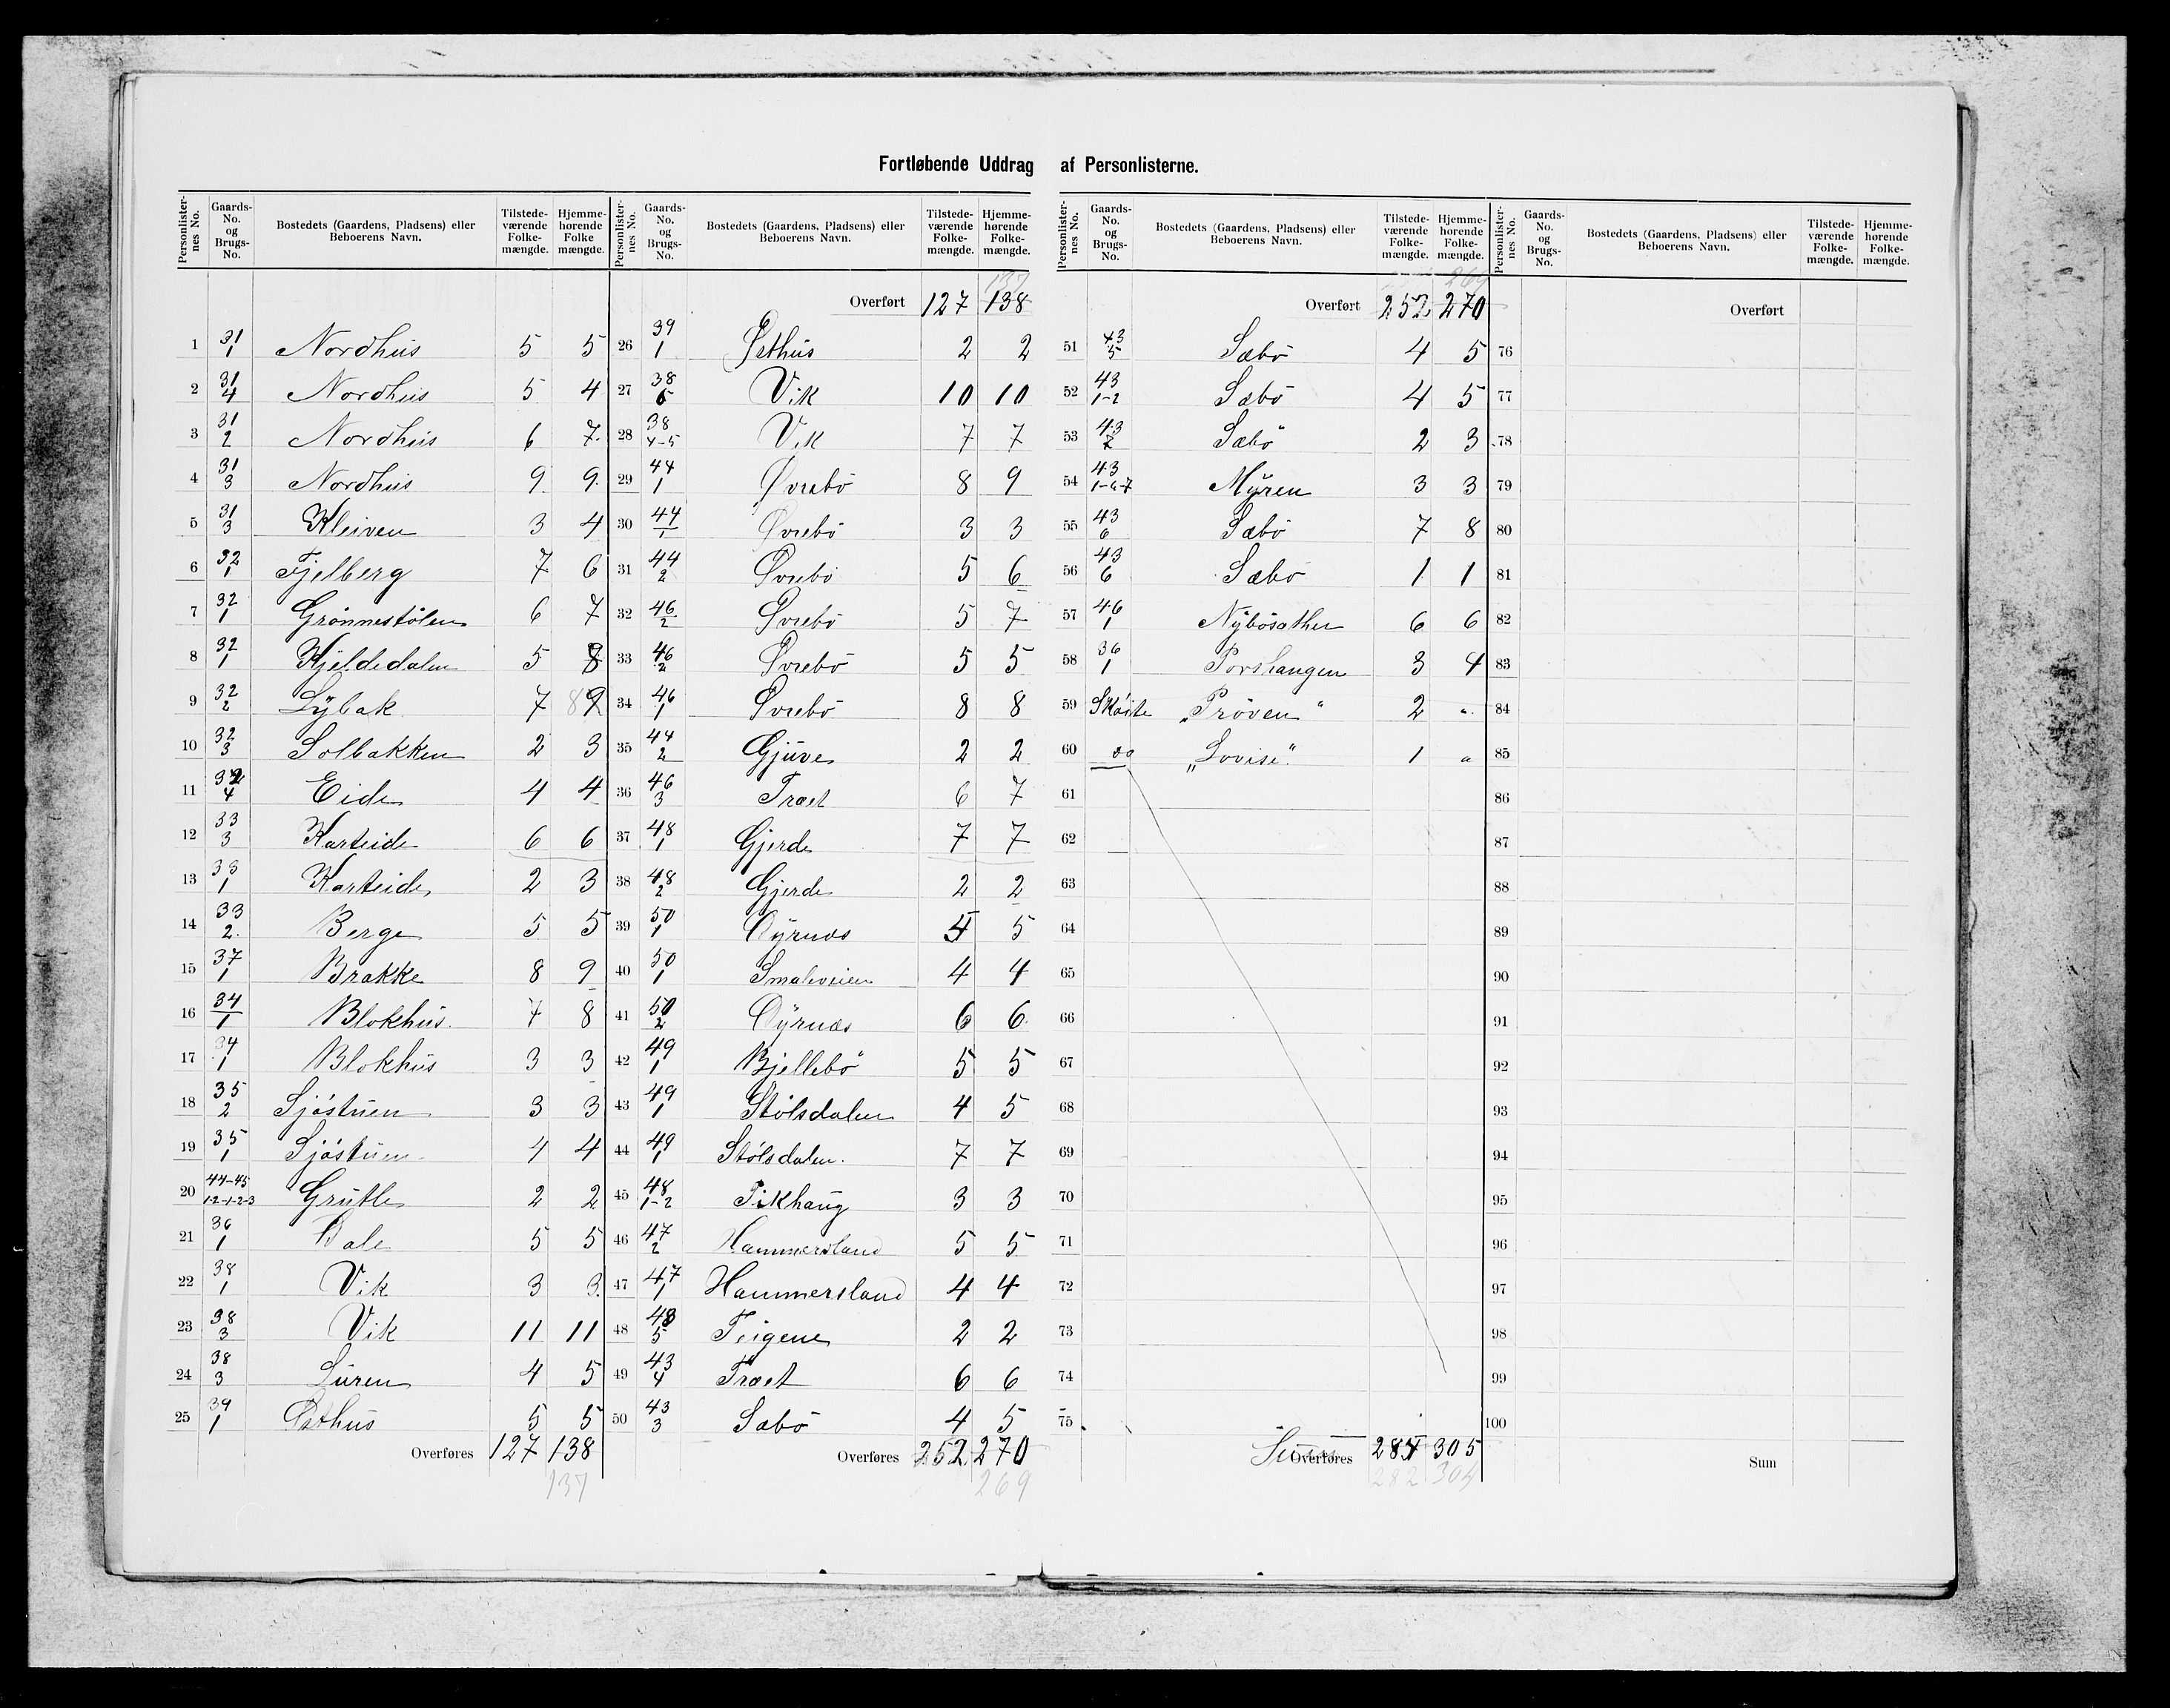 Fortløbende Uddrag af Personlisterne.
Personlisternes No. Gaards-No. og Brugs-No. Bostedets (Gaardens, Pladsens) eller Beboerens Navn. Tilstedeværende Folkemængde. Hjemmehørende Folkemængde.
1 31/1 Nordhus 5 5
2 31/4 Nordhus 5 4
3 31/2 Nordhus 6 7
4 31/3 Nordhus 9 9
5 31/3 Kleiven 3 4
6 32/1 Fjelberg 7 6
7 32/1 Grønnestølen 6 7
8 32/1 Kjeldedalen 5 8
9 32/2 Lÿbak 7 89
10 32/3 Solbakken 2 3
11 32/4 Eide 4 4
12 33/3 Karteide 6 6
13 33/1 Karteide 2 3
14 33/2 Berge 5 5
15 37/1 Brakke 8 9
16 34/1 Blokhus 7 8
17 34/1 Blokhus 3 3
18 35/2 Sjøstuen 3 3
19 35/1 Sjøstuen 4 4
20 44-45/1-2-1-2-3 Grutle 2 2
21 36/1 Dale 5 5
22 38/1 Vik 3 3
23 38/3 Vik 11 11
24 38/3 Luren 4 5
25 39/1 Østhus 5 5
Overføres 127 138
137
Personlisternes No. Gaards-No. og Brugs-No. Bostedets (Gaardens, Pladsens) eller Beboerens Navn. Tilstedeværende Folkemængde. Hjemmehørende Folkemængde.
137
Overført 127 138
26 39/1 Østhus 2 2
27 38/6 Vik 10 10
28 38/4-5 Vik 7 7
29 44/1 Øvrebö 8 9
30 44/1 Øvrebö 3 3
31 44/2 Øvrebö 5 6
32 46/2 Øvrebö 5 7
33 46/2 Øvrebö 5 5
34 46/1 Øvrebö 8 8
35 44/2 Gjuve 2 2
36 46/3 Træet 6 7
37 48/1 Gjerde 7 7
38 48/2 Gjerde 2 2
39 50/1 Öÿrnæs 4 5
40 50/1 Smaleveien 4 4
41 50/2 Öÿrnæs 6 6
42 49/1 Bjellebö 5 5
43 49/1 Stölsdalen 4 5
44 49/1 Stölsdalen 7 7
45 48/1-2 Tikhaug 3 3
46 47/2 Hammersland 5 5
47 47/1 Hammersland 4 4
48 43/5 Teigene 2 2
49 43/4 Træet 6 6
50 43/3 Sæbö 4 5
Overføres 252 270
269
Personlisternes No. Gaards-No. og Brugs-No. Bostedets (Gaardens, Pladsens) eller Beboerens Navn. Tilstedeværende Folkemængde. Hjemmehørende Folkemængde.
269
Overført 252 270
51 43/5 Sæbö 4 5
52 43/1-2 Sæbö 4 5
53 43/7 Sæbö 2 3
54 43/1-6-7 Mÿren 3 3
55 43/6 Sæbö 7 8
56 43/6 Sæbö 1 1
57 46/1 Nÿbösæther 6 6
58 36/1 Porshaugen 3 4
59 Skøite „Pröven" 2 "
60 do „Lovise" 1 "
61
62
63
64
65
66
67
68
69
70
71
72
73
74
75
Overføres Sum 285 305
282 304
Personlisternes No. Gaards-No. og Brugs-No. Bostedets (Gaardens, Pladsens) eller Beboerens Navn. Tilstedeværende Folkemængde. Hjemmehørende Folkemængde.
Overført
76
77
78
79
80
81
82
83
84
85
86
87
88
89
90
91
92
93
94
95
96
97
98
99
100
Sum